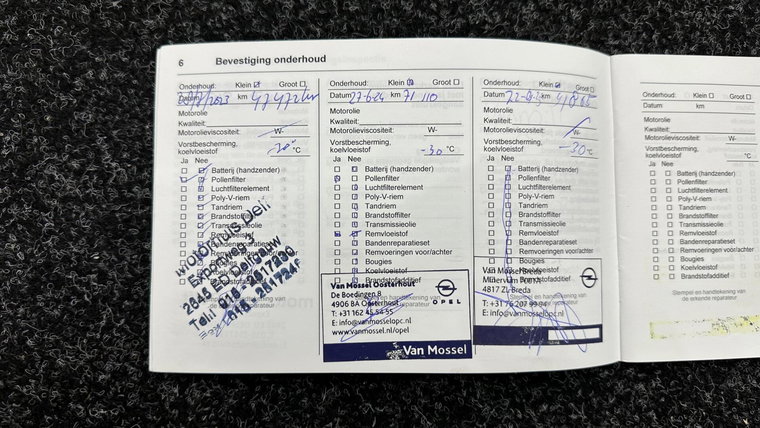 6 Bevestiging onderhoud
Onderhoud: Klein Groot
Datum 2023 km 47472 km
Motorolie
Kwaliteit:
Motorolieviscositeit: W-
Vorstbescherming,
koelvloeistof °C
Ja Nee
Batterij (handzender)
Pollenfilter
Luchtfilterelement
Poly-V-riem
Tandriem
Brandstoffilter
Transmissieolie
Remvloeistof
Bandenreparatieset
Remvoeringen voor/achter
Bougies
Koelvloeistof
Brandstofadditief
Motorhuis Delf
Exportweg
Tel.:
Onderhoud: Klein Groot
Datum 27-6-24 km 71 110
Motorolie
Kwaliteit:
Motorolieviscositeit: W-
Vorstbescherming,
koelvloeistof -30 °C
Ja Nee
Batterij (handzender)
Pollenfilter
Luchtfilterelement
Poly-V-riem
Tandriem
Brandstoffilter
Transmissieolie
Remvloeistof
Bandenreparatieset
Remvoeringen voor/achter
Bougies
Koelvloeistof
Brandstofadditief
Van Mossel Oosterhout
De Boedingen 8
4906 BA Oosterhout
T: +31 162 45 54 55
E: info@vanmosselopc.nl
www.vanmossel.nl/opel
OPEL
Van Mossel
Onderhoud: Klein Groot
Datum km
Motorolie
Kwaliteit:
Motorolieviscositeit: W-
Vorstbescherming,
koelvloeistof -30 °C
Ja Nee
Batterij (handzender)
Pollenfilter
Luchtfilterelement
Poly-V-riem
Tandriem
Brandstoffilter
Transmissieolie
Remvloeistof
Bandenreparatieset
Remvoeringen voor/achter
Bougies
Koelvloeistof
Brandstofadditief
Van Mossel Breda
4817 ZL Breda
E: info@vanmosselopc.nl
OPEL
Onderhoud: Klein Groot
Datum km
Motorolie
Kwaliteit:
Motorolieviscositeit: W-
Vorstbescherming,
koelvloeistof °C
Ja Nee
Batterij (handzender)
Pollenfilter
Luchtfilterelement
Poly-V-riem
Tandriem
Brandstoffilter
Transmissieolie
Remvloeistof
Bandenreparatieset
Remvoeringen voor/achter
Bougies
Koelvloeistof
Brandstofadditief
Stempel en handtekening van
de erkende reparateur